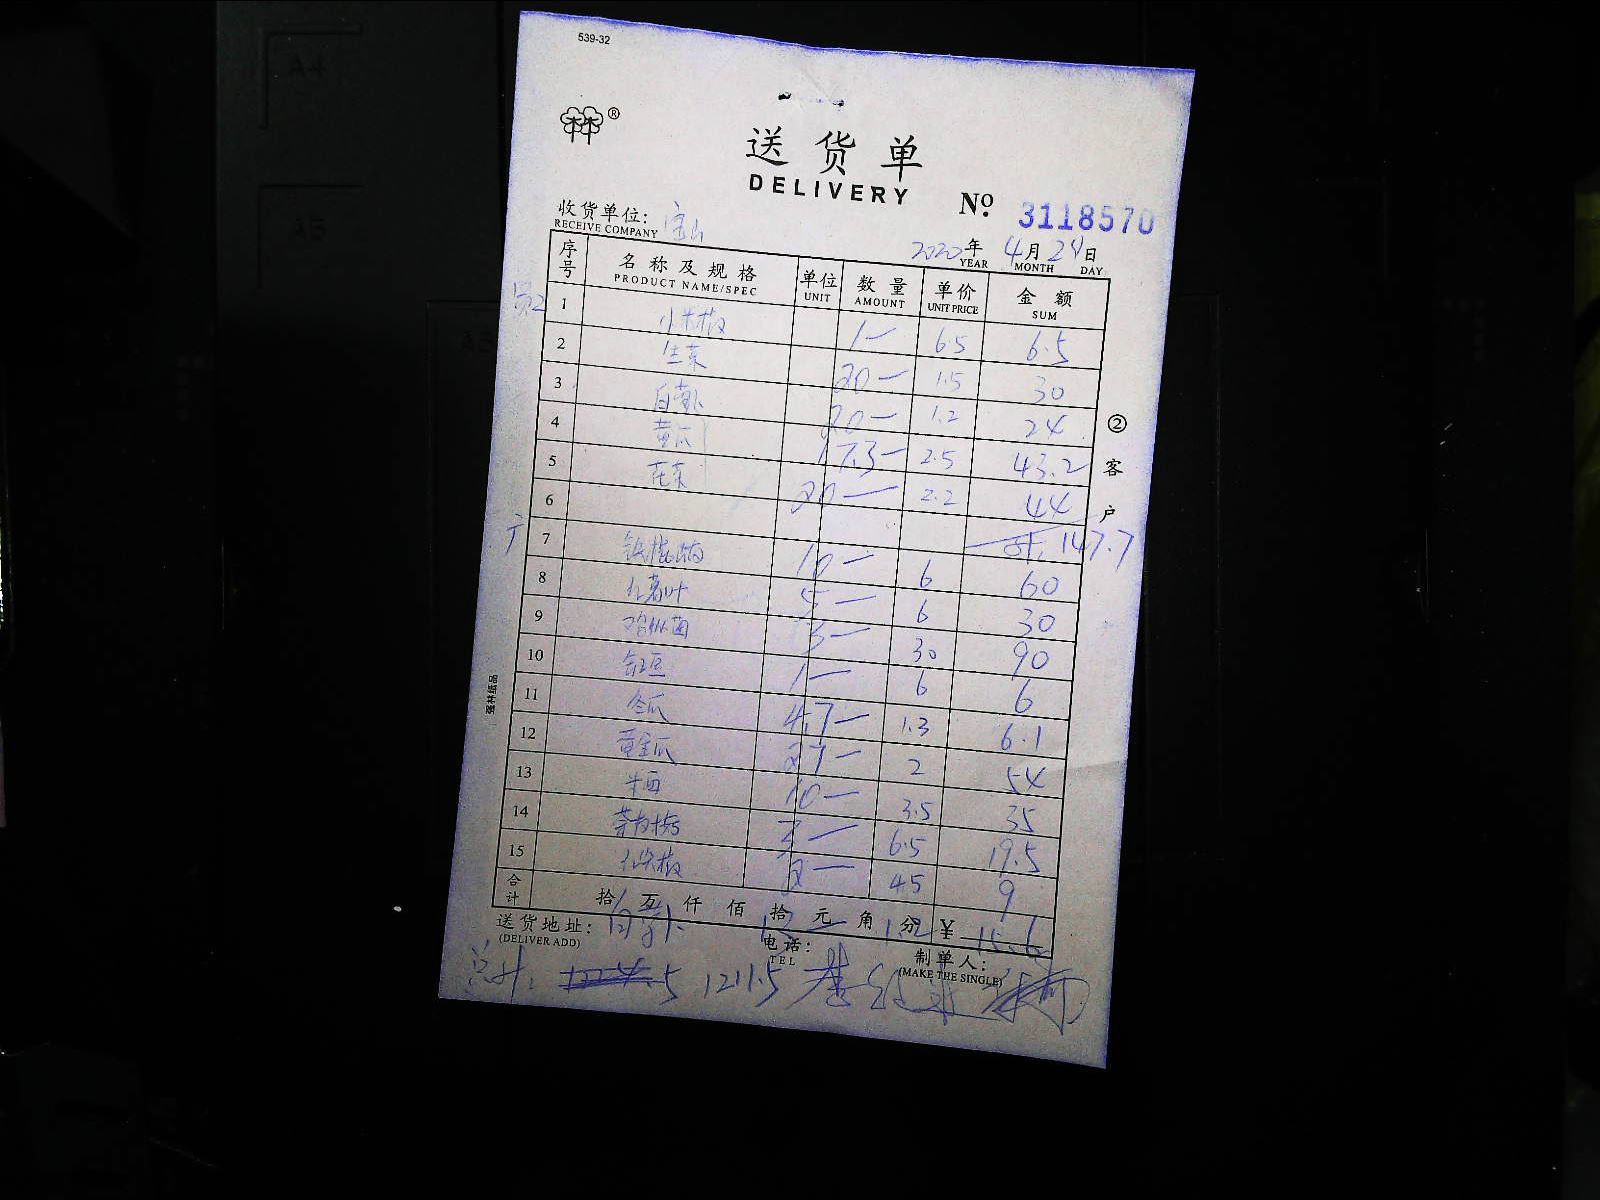 539-32
林®
送货单
DELIVERY
№ 3118570
收货单位: 宝山
RECEIVE COMPANY
2020年 4月 24日
YEAR MONTH DAY
序号 名称及规格 单位 数量 单价 金额
PRODUCT NAME/SPEC UNIT AMOUNT UNIT PRICE SUM
1 小米椒 1 65 6.5
2 生菜 20 1.5 30
3 20 1.2 24
4 黄瓜 17.3 2.5 43.2
5 花菜 20 2.2 44
6 计: 147.7
7 10 6 60
8 红薯叶 5 6 30
9 3 30 90
10 豇豆 1 6 6
11 冬瓜 4.7 1.3 6.1
12 黄金瓜 27 2 54
13 10 3.5 35
14 3 6.5 19.5
15 红尖椒 2 45 9
合计 拾 万 仟 佰 拾 元 角 分 ¥ 15.6
送货地址:
(DELIVER ADD)
电话:
TEL
制单人:
(MAKE THE SINGLE)
总计: 1211.5
②客户
强林纸品